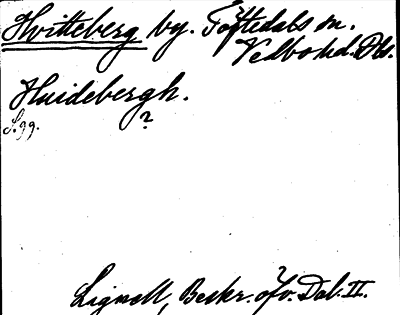 Hvitteberg by. Töftedals sn.
Vedbo hd. Dsl.
Huidebergh.
S. 99. ?
Lignell, Beskr. öfv. Dal. II.